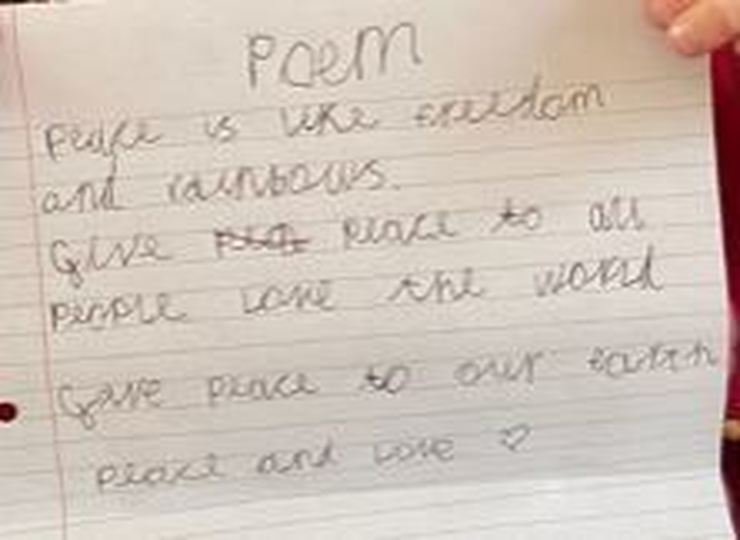 Poem
Peace is like freedom
and rainbows.
Give peace to all
people love the world
Give peace to our earth
peace and love ♡